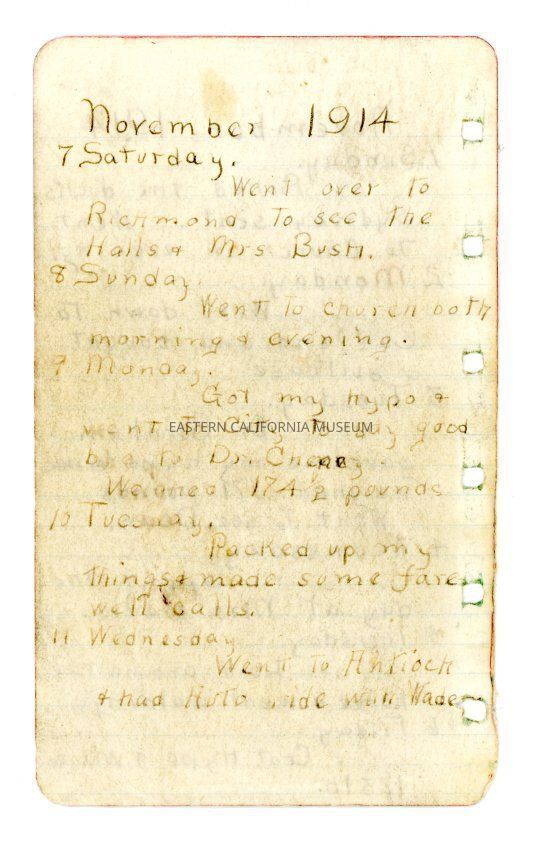 November 1914
7 Saturday.
Went over to
Richmond to see the
Halls & Mrs Bush.
8 Sunday.
Went to church both
morning & evening.
9 Monday.
Got my hypo &
went to City to say good
bye to Dr. Cheney
Weighed 174 1/2 pounds
10 Tuesday.
Packed up my
things & made some fare
well calls.
11 Wednesday
Went to Antioch
& had Auto ride with Wade
EASTERN CALIFORNIA MUSEUM